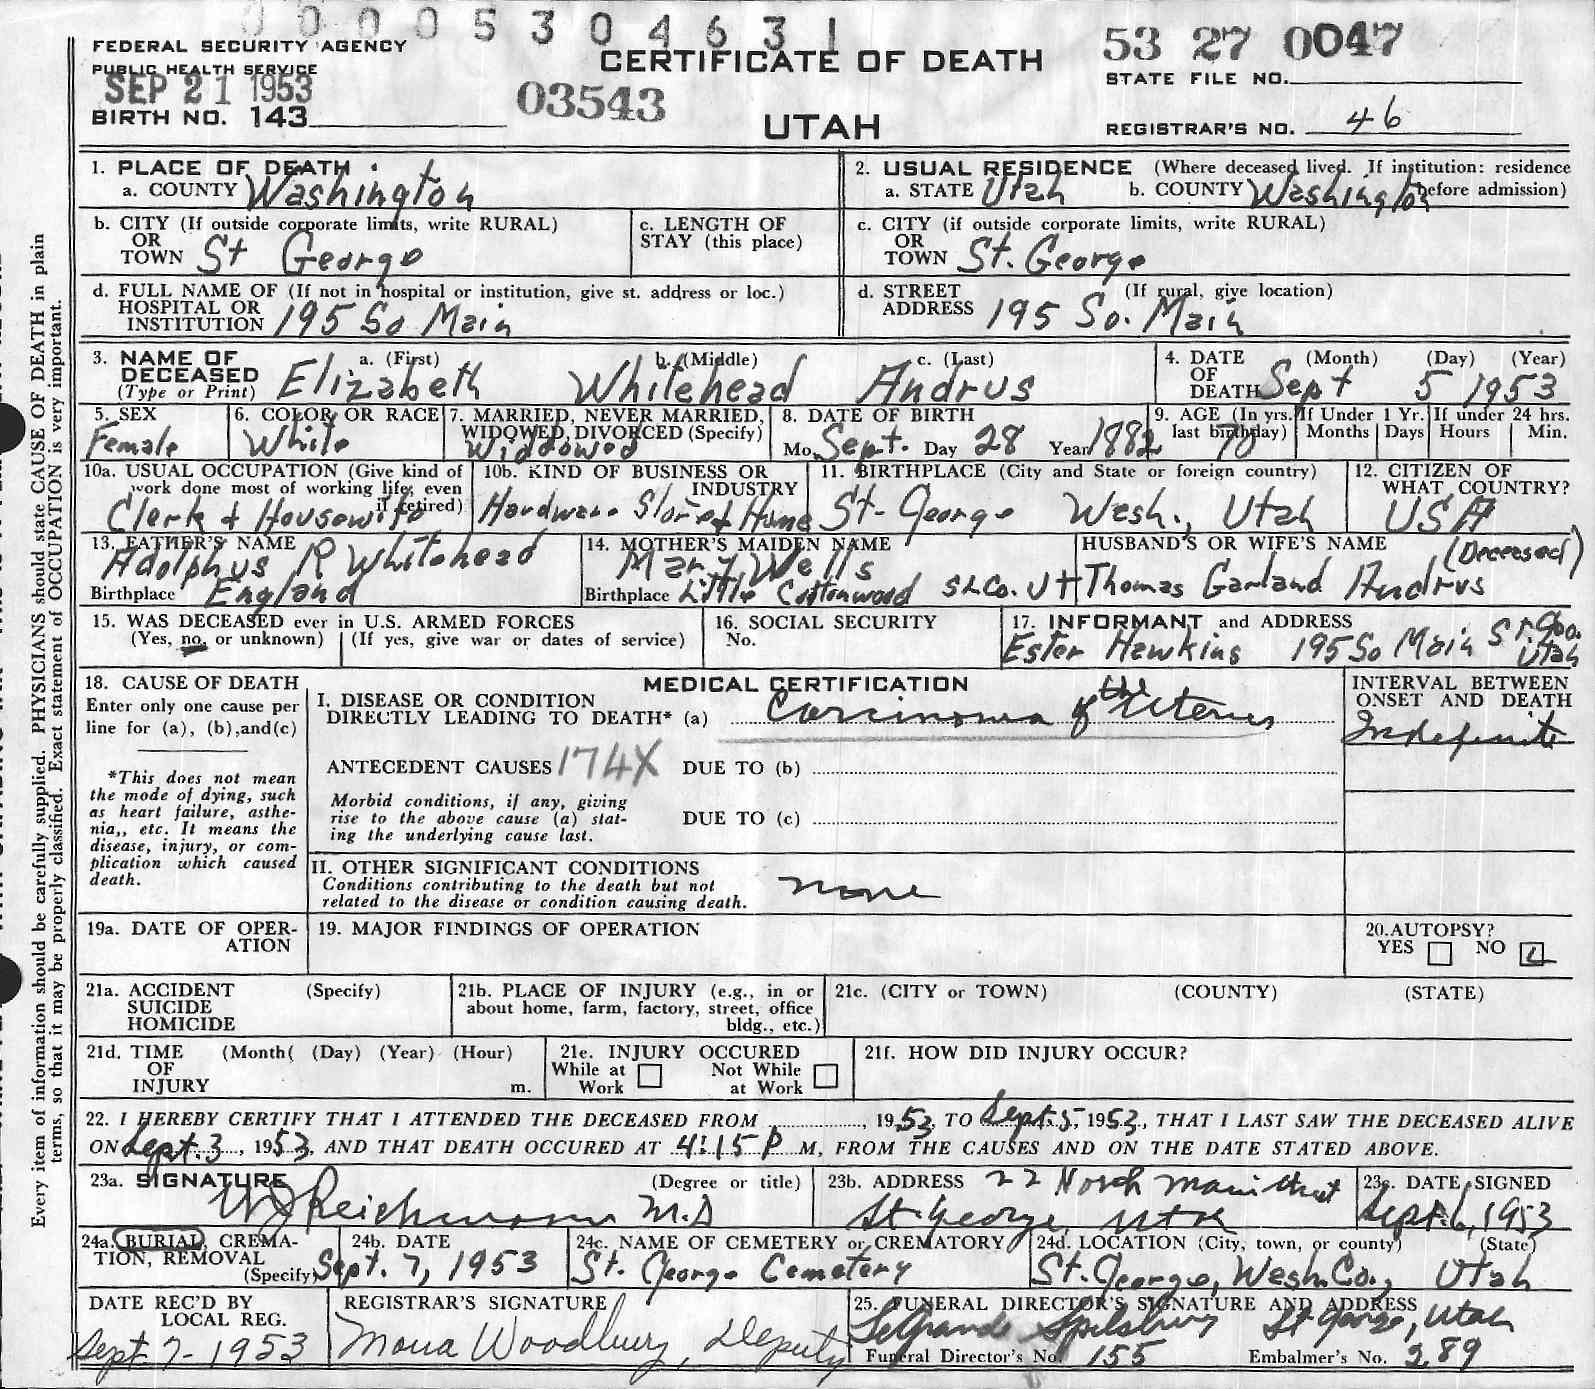 00005304631
FEDERAL SECURITY AGENCY
PUBLIC HEALTH SERVICE
SEP 21 1953
BIRTH NO. 143
03543
CERTIFICATE OF DEATH
UTAH
53 27 0047
STATE FILE NO.
REGISTRAR'S NO. 46
1. PLACE OF DEATH
a. COUNTY Washington
2. USUAL RESIDENCE (Where deceased lived. If institution: residence before admission)
a. STATE Utah b. COUNTY Washington
b. CITY (If outside corporate limits, write RURAL)
OR
TOWN St George
c. LENGTH OF
STAY (this place)
c. CITY (if outside corporate limits, write RURAL)
OR
TOWN St. George
d. FULL NAME OF (If not in hospital or institution, give st. address or loc.)
HOSPITAL OR
INSTITUTION 195 So Main
d. STREET (If rural, give location)
ADDRESS 195 So. Main
3. NAME OF a. (First) b. (Middle) c. (Last)
DECEASED
(Type or Print) Elizabeth Whitehead Andrus
4. DATE (Month) (Day) (Year)
OF
DEATH Sept 5 1953
5. SEX
Female
6. COLOR OR RACE
White
7. MARRIED, NEVER MARRIED,
WIDOWED, DIVORCED (Specify)
Widdowed
8. DATE OF BIRTH
Mo. Sept. Day 28 Year 1882
9. AGE (In yrs. last birthday) 70
If Under 1 Yr.
Months Days
If under 24 hrs.
Hours Min.
10a. USUAL OCCUPATION (Give kind of
work done most of working life, even
if retired)
Clerk + Housewife
10b. KIND OF BUSINESS OR
INDUSTRY
Hardware Store + Home
11. BIRTHPLACE (City and State or foreign country)
St. George Wash., Utah
12. CITIZEN OF
WHAT COUNTRY?
USA
13. FATHER'S NAME
Adolphus R Whitehead
Birthplace England
14. MOTHER'S MAIDEN NAME
Mary Wells
Birthplace Little Cottonwood SLCo. Ut
HUSBAND'S OR WIFE'S NAME (Deceased)
Thomas Garland Andrus
15. WAS DECEASED ever in U.S. ARMED FORCES
(Yes, no, or unknown) (If yes, give war or dates of service)
16. SOCIAL SECURITY
No.
17. INFORMANT and ADDRESS
Ester Hawkins 195 So Main St. Geo. Utah
18. CAUSE OF DEATH
Enter only one cause per
line for (a), (b), and (c)
*This does not mean
the mode of dying, such
as heart failure, asthe-
nia,, etc. It means the
disease, injury, or com-
plication which caused
death.
MEDICAL CERTIFICATION
I. DISEASE OR CONDITION
DIRECTLY LEADING TO DEATH* (a) Carcinoma of the Uterus
ANTECEDENT CAUSES 174X DUE TO (b)
Morbid conditions, if any, giving
rise to the above cause (a) stat-
ing the underlying cause last.
DUE TO (c)
INTERVAL BETWEEN
ONSET AND DEATH
Indefinite
II. OTHER SIGNIFICANT CONDITIONS
Conditions contributing to the death but not
related to the disease or condition causing death.
none
19a. DATE OF OPER-
ATION
19. MAJOR FINDINGS OF OPERATION
20. AUTOPSY?
YES NO
21a. ACCIDENT (Specify)
SUICIDE
HOMICIDE
21b. PLACE OF INJURY (e.g., in or
about home, farm, factory, street, office
bldg., etc.)
21c. (CITY or TOWN) (COUNTY) (STATE)
21d. TIME (Month( (Day) (Year) (Hour)
OF
INJURY m.
21e. INJURY OCCURED
While at Not While
Work at Work
21f. HOW DID INJURY OCCUR?
22. I HEREBY CERTIFY THAT I ATTENDED THE DECEASED FROM , 1953, TO Sept. 5, 1953, THAT I LAST SAW THE DECEASED ALIVE
ON Sept. 3, 1953, AND THAT DEATH OCCURED AT 4:15 P M, FROM THE CAUSES AND ON THE DATE STATED ABOVE.
23a. SIGNATURE (Degree or title)
Reichmann M.D
23b. ADDRESS 22 North Main Street
St. George, Utah
23c. DATE SIGNED
Sept. 6, 1953
24a. BURIAL, CREMA-
TION, REMOVAL
(Specify)
24b. DATE
Sept. 7, 1953
24c. NAME OF CEMETERY or CREMATORY
St. George Cemetery
24d. LOCATION (City, town, or county) (State)
St. George, Wash. Co., Utah
DATE REC'D BY
LOCAL REG.
Sept. 7 - 1953
REGISTRAR'S SIGNATURE
Mona Woodbury, Deputy
25. FUNERAL DIRECTOR'S SIGNATURE AND ADDRESS
Spilsbury St George, Utah
Funeral Director's No. 155 Embalmer's No. 289
Every item of information should be carefully supplied. PHYSICIANS should state CAUSE OF DEATH in plain
terms, so that it may be properly classified. Exact statement of OCCUPATION is very important.